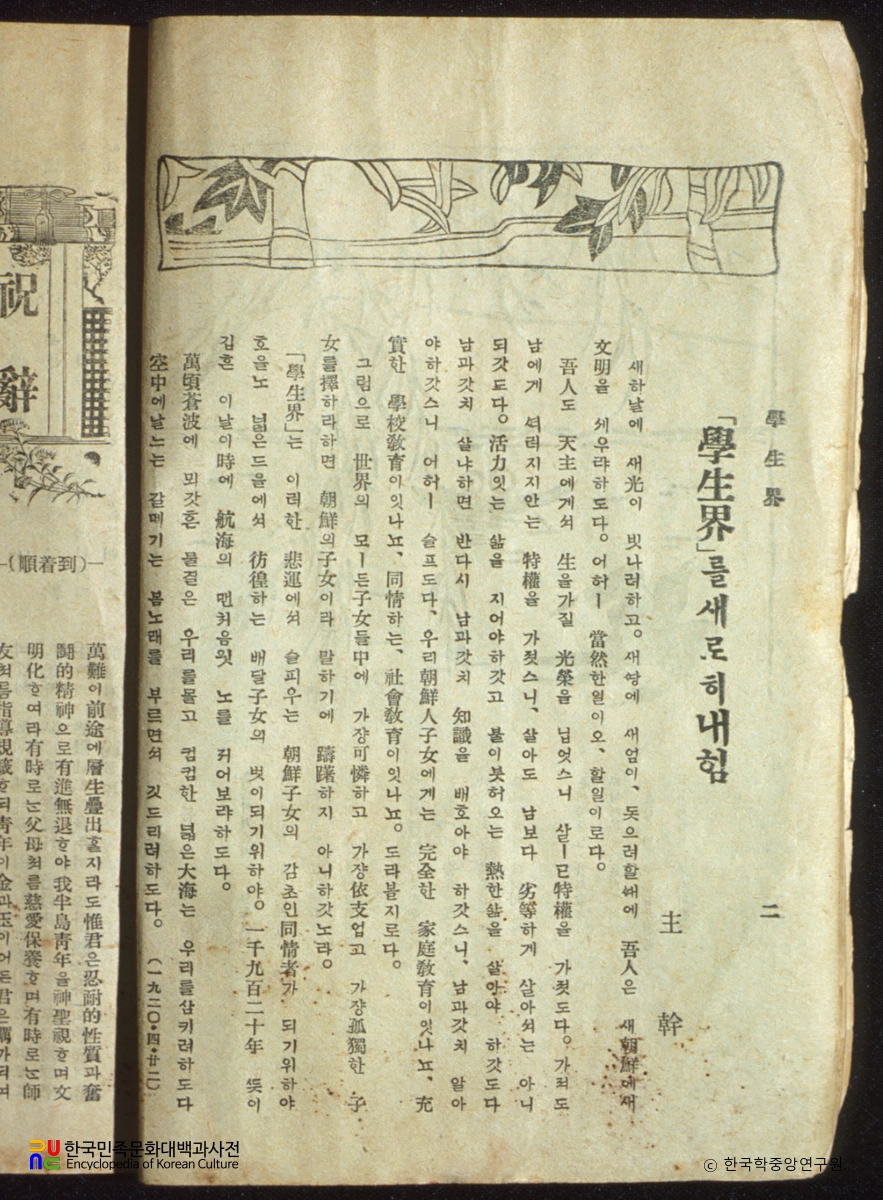 學生界
二
「學生界」를새로히내힘
主幹
새하날에 새光이 빗나려하고。새쌍에 새엄이、돗으려할ㅅ대에 吾人은 새朝鮮에새
文明을 세우랴하도다。어허ㅣ 當然한일이오、할일이로다。
吾人도 天主에게서 生을가질 光榮을 닙엇스니 살ㅣ已特權을 가젓도다。가저도
남에게 ᄯᅥ러지지안는 特權을 가젓스니、살아도 남보다 劣等하게 살아서는 아니
되갓도다。活力잇는 삶을 지어야하갓고 불이붓허오는 熱한삶을 살아야 하갓도다
남과갓치 살냐하면 반다시 남과갓치 知識을 배호아야 하갓스니、남과갓치 알아
야하갓스니 어허ㅣ 슬프도다、우리朝鮮人子女에게는 完全한 家庭敎育이잇나뇨、充
實한 學校敎育이잇나뇨、同情하는、社會敎育이잇나뇨。도라볼지로다。
그럼으로 世界의 모ㅣ든子女들中에 가쟝可憐하고 가쟝依支업고 가쟝孤獨한 子
女를擇하라하면 朝鮮의子女이라 말하기에 躊躇하지 아니하갓노라。
「學生界」는 이러한 悲運에서 슬피우는 朝鮮子女의 감초인同情者가 되기위하야
호을노 넓은드을에서 彷徨하는 배달子女의 벗이되기위하야。一千九百二十年 ᄯᅳᆺ이
깁흔 이날이時에 航海의 맨처음 노를 저어보랴하도다。
萬頃蒼波에 뫼갓흔 물결은 우리를몰고 컴컴한 넓은大海는 우리를삼키려하도다
空中에날느는 갈메기는 봄노래를 부르면서 깃드리려하도다。 (一九二〇・四・廿二)
祝辭
(順着到)
萬難이前途에層生疊出ᄒᆞᆯ지라도惟君은忍耐的性質과奮
鬪的精神으로有進無退ᄒᆞ야我半島靑年을神聖視ᄒᆞ며文
明化ᄒᆞ여라有時로ᄂᆞᆫ父母처름慈愛保養ᄒᆞ며有時로ᄂᆞᆫ師
友처름指導規箴ᄒᆞ되靑年이
한국민족문화대백과사전
Encyclopedia of Korean Culture
© 한국학중앙연구원